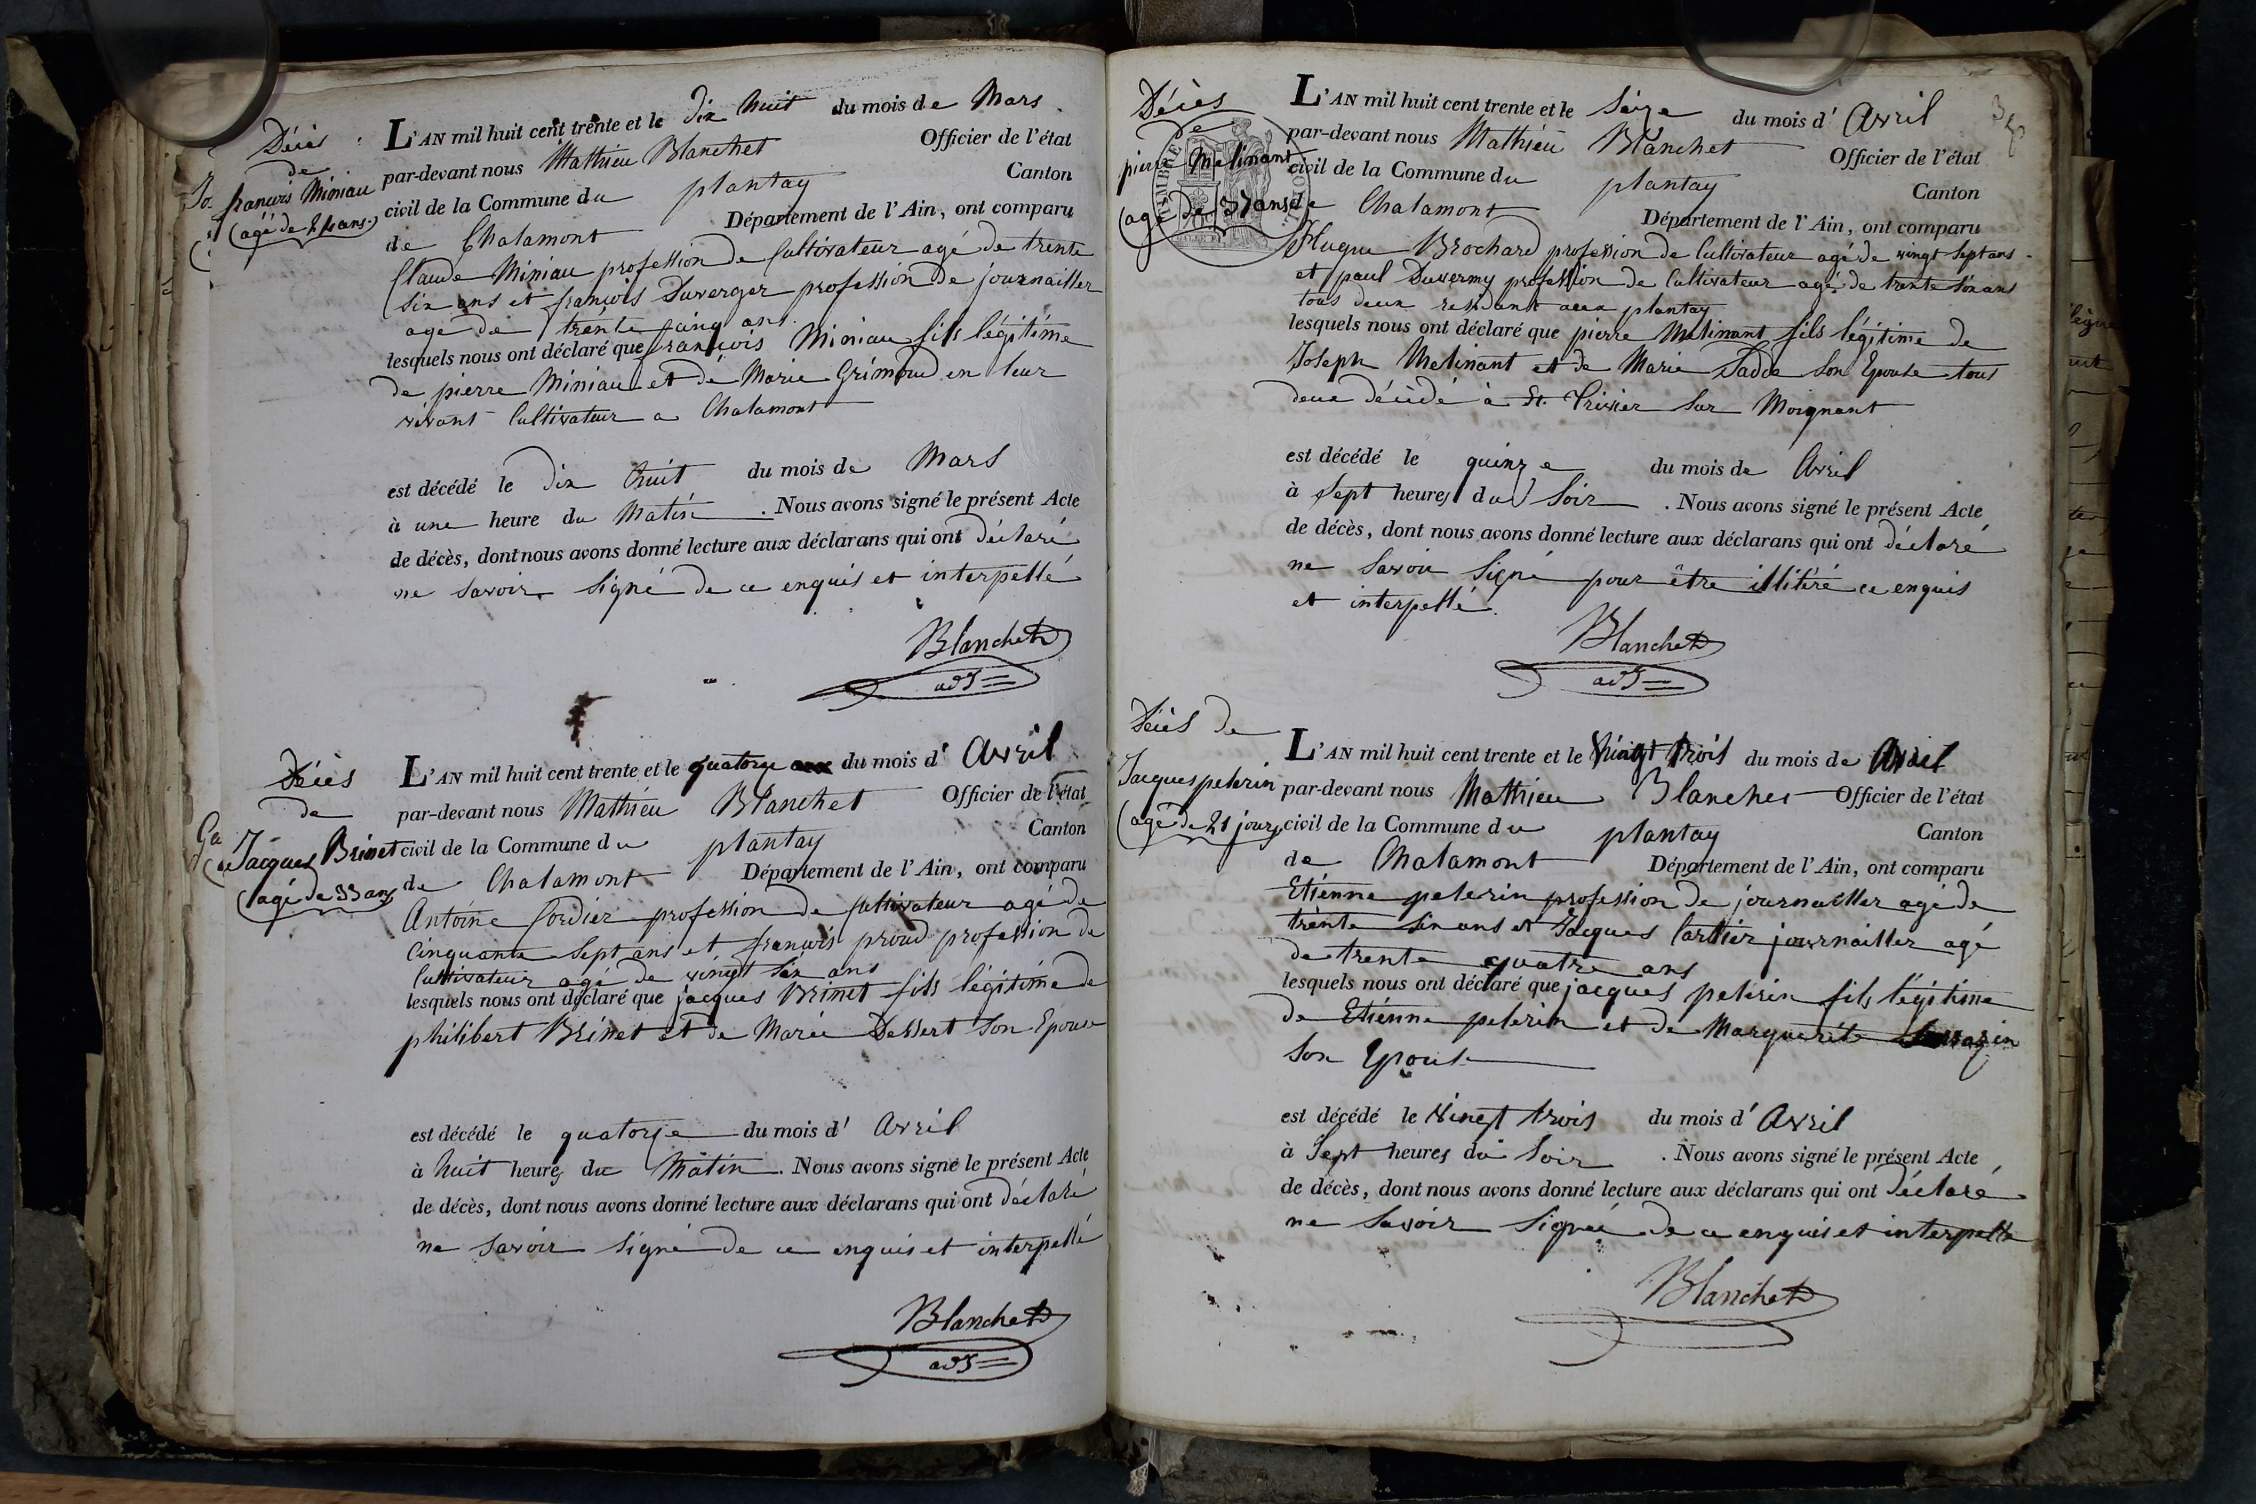 Décès
de
françois Miniau
(agé de 24 ans)
L'AN mil huit cent trente et le dix huit du mois de Mars
par-devant nous Mathieu Blanchet Officier de l'état
civil de la Commune du plantay Canton
de Chalamont Département de l'Ain, ont comparu
Claude Miniau profession de Cultivateur agé de trente
six ans et françois Duverger profession de journallier
age de trente cinq ans
lesquels nous ont déclaré que françois Miniau fils légitime
de pierre Miniau et de Marie Grimoud en leur
vivant Cultivateur a Chalamont
est décédé le dix huit du mois de Mars
à une heure du Matin. Nous avons signé le présent Acte
de décès, dont nous avons donné lecture aux déclarans qui ont déclaré
ne savoir signé de ce enquis et interpellé
Blanchet
adj
Décès
de
Jacques Brinet
(agé de 33 ans
L'AN mil huit cent trente et le quatorze du mois d' Avril
par-devant nous Mathieu Blanchet Officier de l'état
civil de la Commune du plantay Canton
de Chalamont Département de l'Ain, ont comparu
Antoine Cordier profession de Cultivateur agé de
Cinquante sept ans et françois proud profession de
Cultivateur agé de vingt six ans
lesquels nous ont déclaré que jacques Brinet fils légitime de
philibert Brinet et de Marie Dessert son Epouse
est décédé le quatorze du mois d' Avril
à huit heures du Matin. Nous avons signé le présent Acte
de décès, dont nous avons donné lecture aux déclarans qui ont déclaré
ne savoir signé de ce enquis et interpellé
Blanchet
adj
Décès
de
pierre Melinant
(agé de 37 ans
L'AN mil huit cent trente et le Seize du mois d' Avril
par-devant nous Mathieu Blanchet Officier de l'état
civil de la Commune du plantay Canton
de Chalamont Département de l'Ain, ont comparu
Hugue Brochard profession de Cultivateur agé de vingt sept ans
et paul Duvermy profession de Cultivateur agé de trente six ans
tous deux résidant aux plantay
lesquels nous ont déclaré que pierre Melinant fils légitime de
Joseph Melinant et de Marie Sadde son Epouse tous
deux décédé à St. Trivier sur Moignant
est décédé le quinze du mois de Avril
à Sept heures du Soir. Nous avons signé le présent Acte
de décès, dont nous avons donné lecture aux déclarans qui ont déclaré
ne Savoir Signé pour être illitéré ce enquis
et interpellé.
Blanchet
adj
Décès de
Jacques pelerin
(agé de 21 jours
L'AN mil huit cent trente et le Vingt trois du mois de Avril
par-devant nous Mathieu Blanchet Officier de l'état
civil de la Commune du plantay Canton
de Chalamont Département de l'Ain, ont comparu
Etiénne pelerin profession de journallier agé de
trente six ans et Jacques Cartier journallier agé
de trente quatre ans
lesquels nous ont déclaré que jacques pelerin fils légitime
de Etiénne pelerin et de Marguerite
son Epouse
est décédé le Vingt trois du mois d' Avril
à Sept heures du Soir. Nous avons signé le présent Acte
de décès, dont nous avons donné lecture aux déclarans qui ont déclaré
ne savoir signé de ce enquis et interpellé
Blanchet